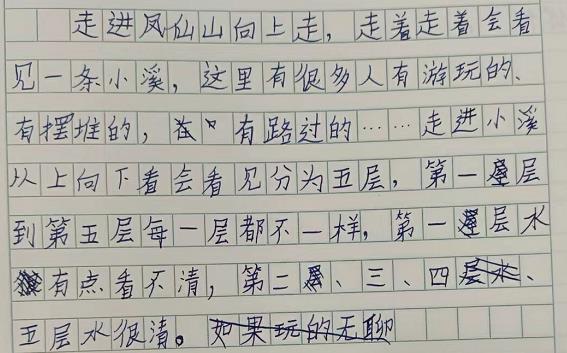 走进凤仙山向上走，走着走着会看
见一条小溪，这里有很多人有游玩的、
有摆堆的，有路过的……走进小溪
从上向下看会看见分为五层，第一层
到第五层每一层都不一样，第一层水
有点看不清，第二、三、四层水、
五层水很清。如果玩的无聊